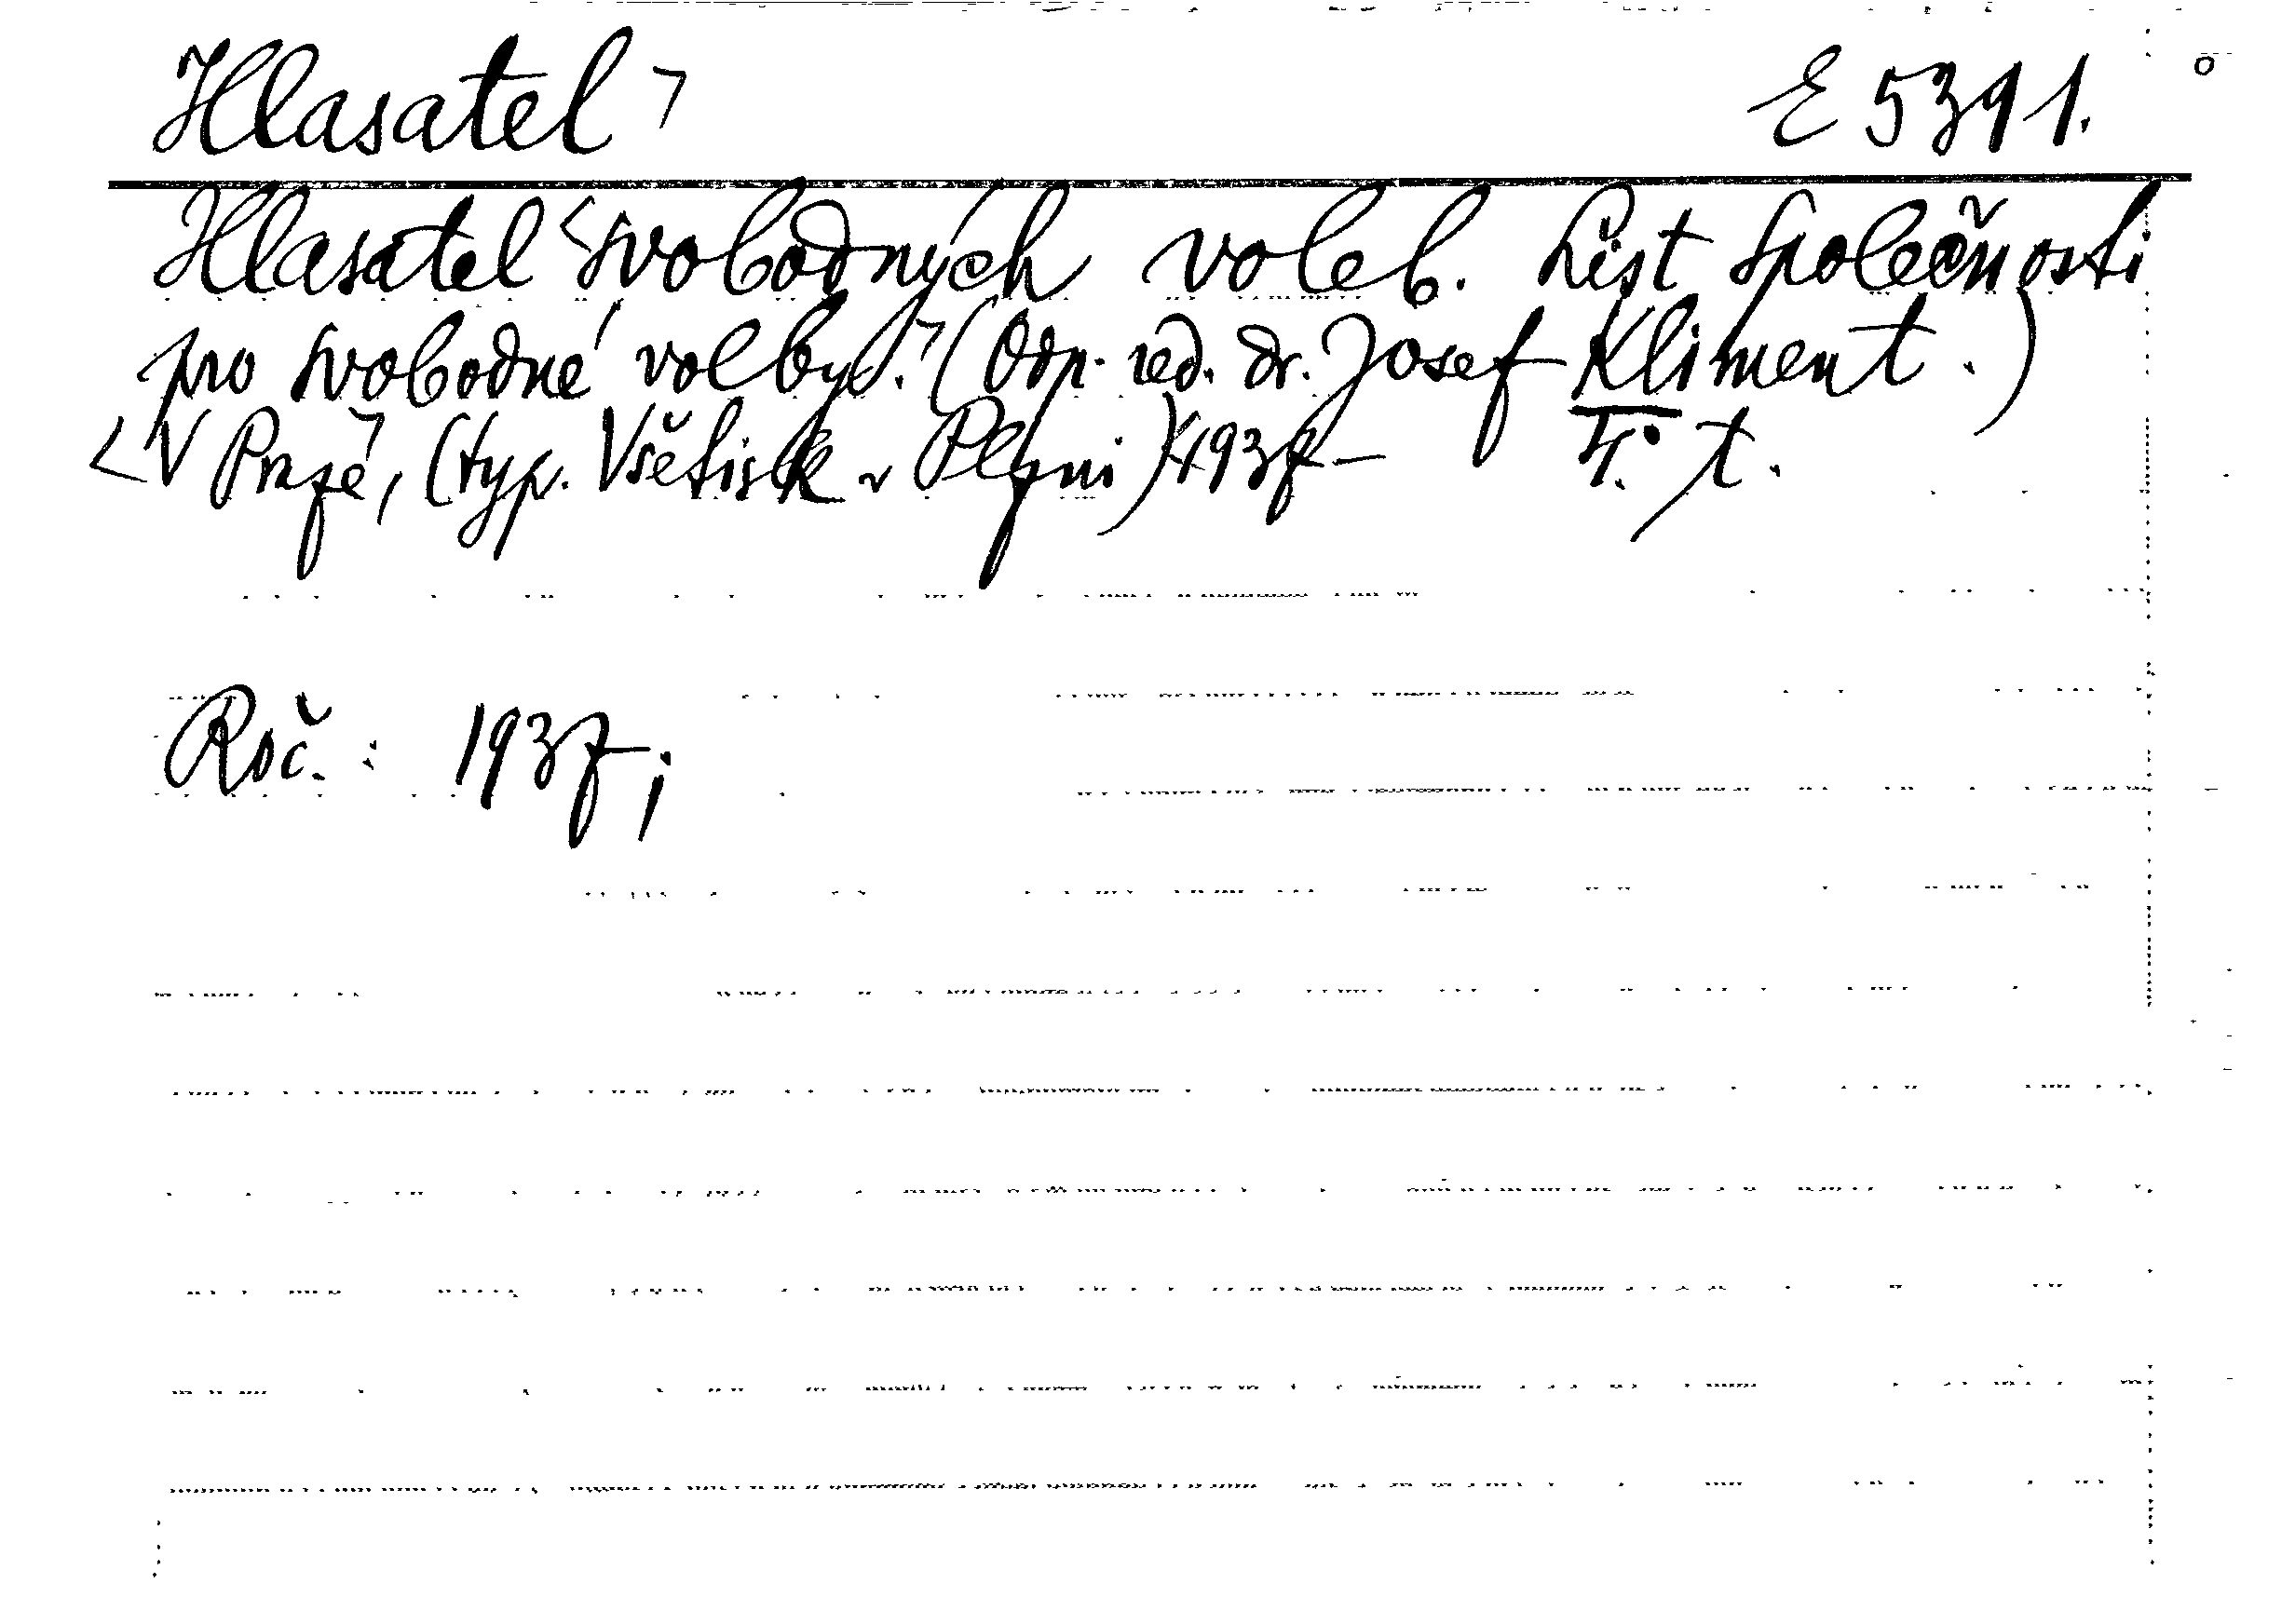 Hlasatel ˺ E 5391.
Hlasatel <svobodných voleb. List Společnosti
pro svobodné volby.˺ (Odp. red. dr. Josef Kliment.)
<V Praze˺, (typ. Všetisk v Plzni) 1937– 4.° t.
Roč.: 1937;